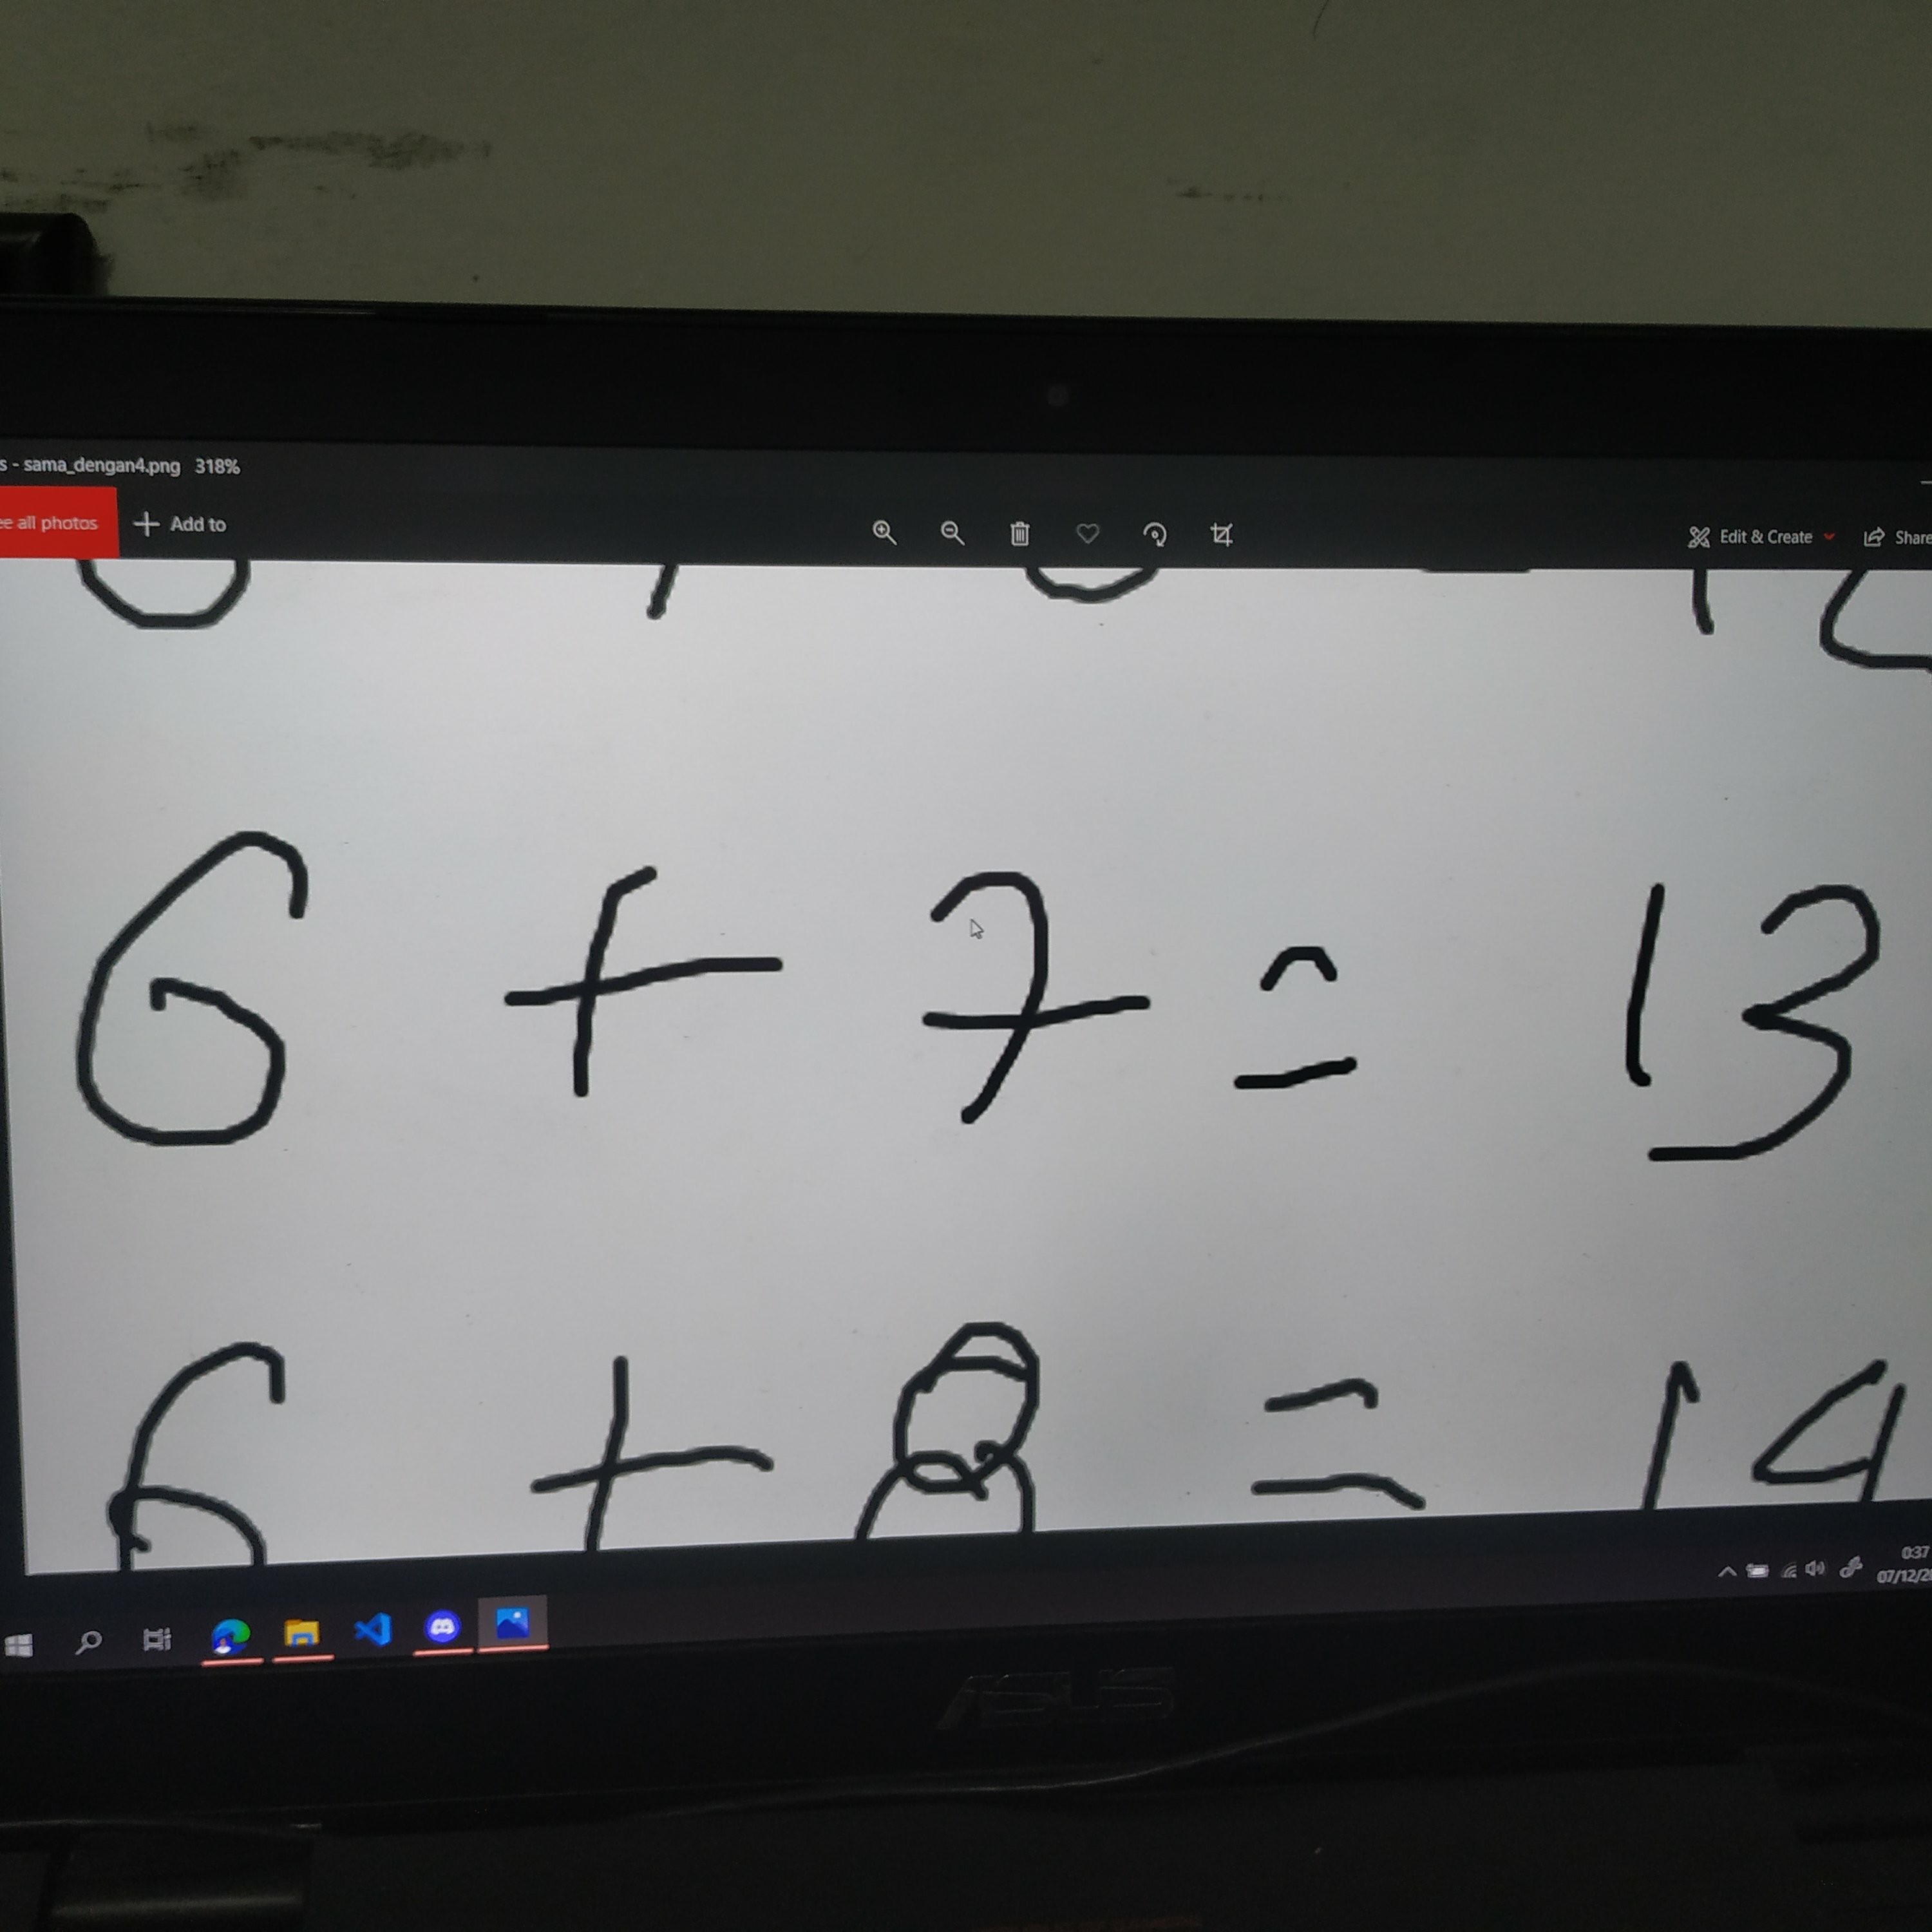 s - sama_dengan4.png 318%
ee all photos Add to Edit & Create Share
6 + 7 = 13
6 + 8 = 14
0:37
07/12/2
ASUS